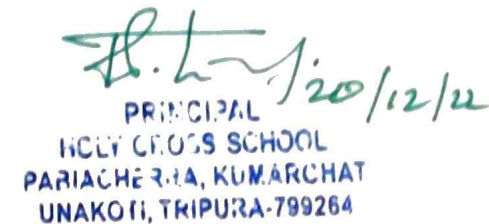 20/12/22
PRINCIPAL
HOLY CROSS SCHOOL
PARIACHERRA, KUMARGHAT
UNAKOTI, TRIPURA-799264